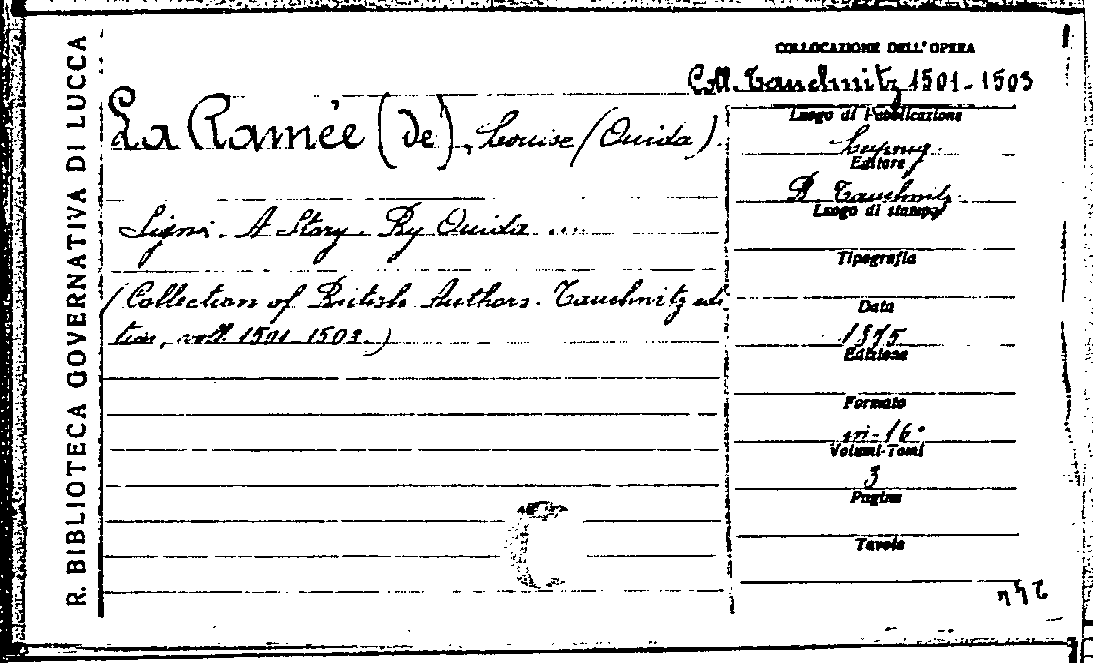 R. BIBLIOTECA GOVERNATIVA DI LUCCA
COLLOCAZIONE DELL'OPERA
Coll. Tauchnitz 1501-1503
La Ramée (de), Louise (Ouida).
Signa. A Story. By Ouida ...
(Collection of British Authors. Tauchnitz edi
tion, voll. 1501-1503.)
Luogo di Pubblicazione
Leipzig
Editore
B. Tauchnitz
Luogo di stampa
Tipografia
Data
1875
Edizione
Formato
in-16°
Volumi-Tomi
3
Pagine
Tavole